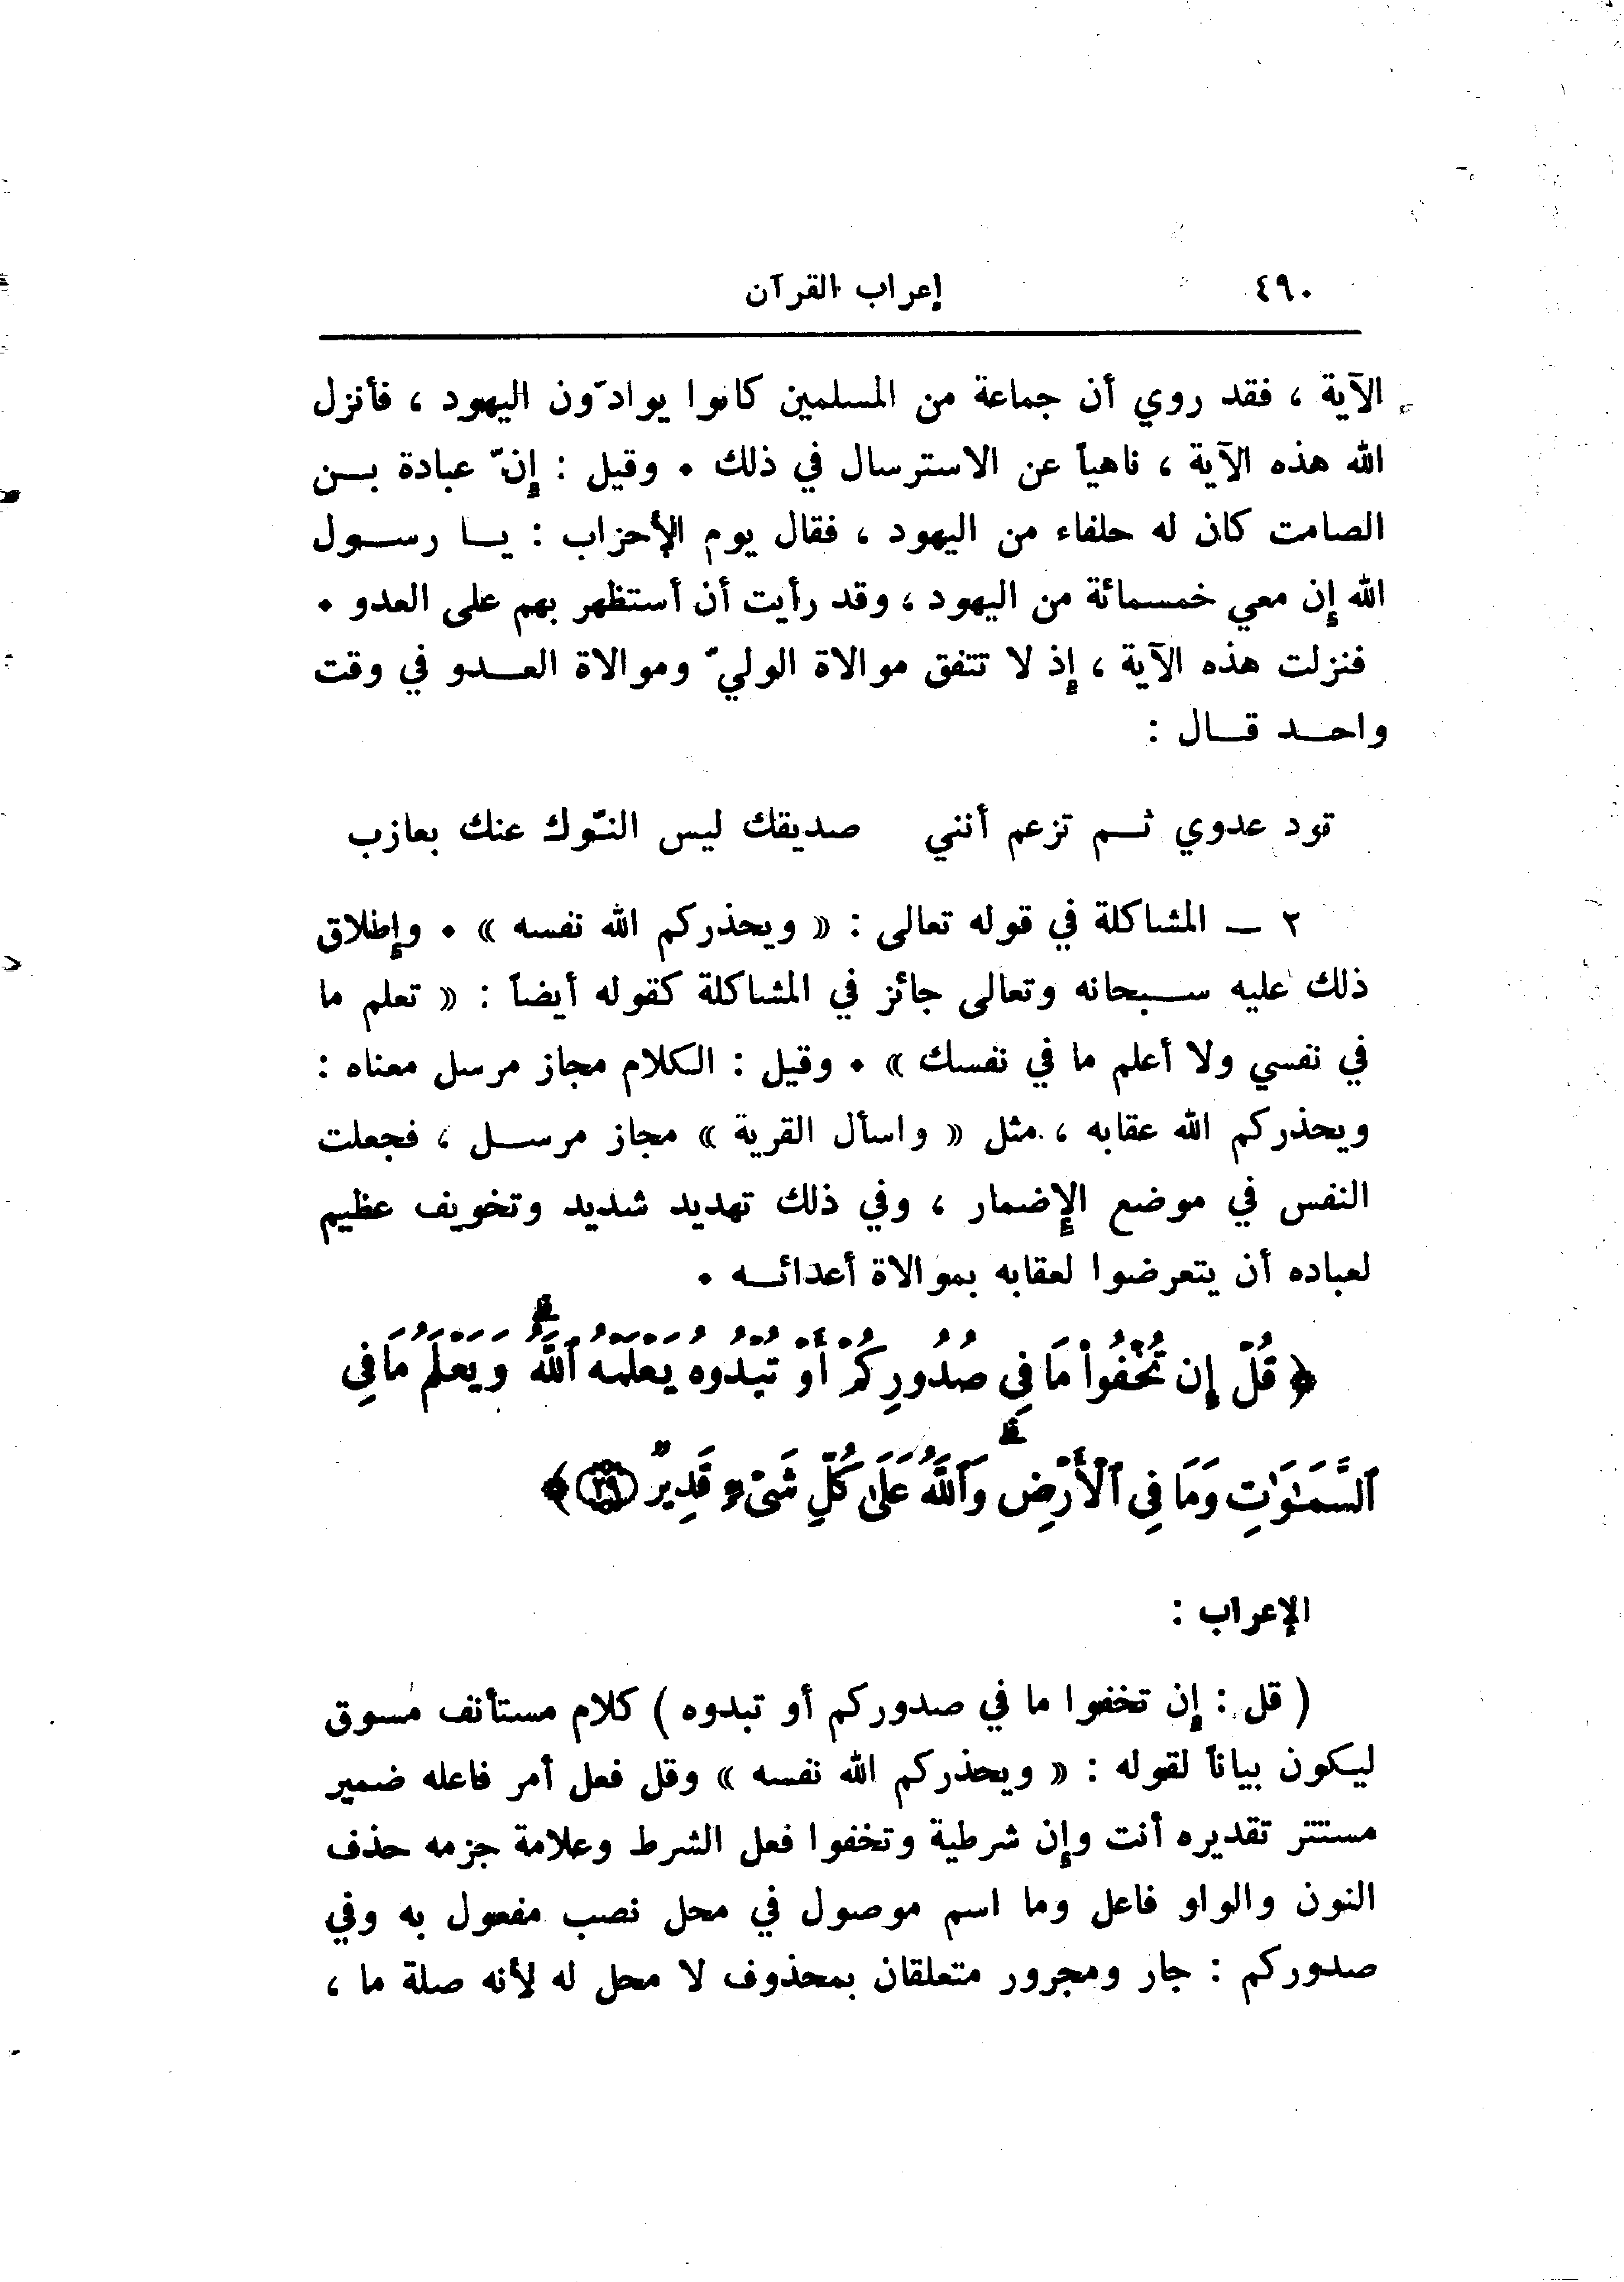 ٤٩٠ إعراب القرآن
الآية ، فقد روي أن جماعة من المسلمين كانوا يوادّون اليهود ، فأنزل
الله هذه الآية ، ناهياً عن الاسترسال في ذلك ٠ وقيل : إنّ عبادة بــن
الصامت كان له حلفاء من اليهود ، فقال يوم الأحزاب : يــا رســول
الله إن معي خمسمائة من اليهود ، وقد رأيت أن أستظهر بهم على العدو ٠
فنزلت هذه الآية ، إذ لا تتفق موالاة الوليّ وموالاة العــدو في وقت
واحــد قــال :
تود عدوي ثــم تزعم أنني صديقك ليس النّوك عنك بعازب
٢ ــ المشاكلة في قوله تعالى : « ويحذركم الله نفسه » ٠ وإطلاق
ذلك عليه ســبحانه وتعالى جائز في المشاكلة كقوله أيضاً : « تعلم ما
في نفسي ولا أعلم ما في نفسك » ٠ وقيل : الكلام مجاز مرسل معناه :
ويحذركم الله عقابه ، مثل « واسأل القرية » مجاز مرســل ، فجعلت
النفس في موضع الإضمار ، وفي ذلك تهديد شديد وتخويف عظيم
لعباده أن يتعرضوا لعقابه بموالاة أعدائــه ٠
﴿ قُلْ إِن تُخْفُوا۟ مَا فِى صُدُورِكُمْ أَوْ تُبْدُوهُ يَعْلَمْهُ ٱللَّهُ ۗ وَيَعْلَمُ مَا فِى
ٱلسَّمَـٰوَٰتِ وَمَا فِى ٱلْأَرْضِ ۗ وَٱللَّهُ عَلَىٰ كُلِّ شَىْءٍ قَدِيرٌ ٢٩ ﴾
الإعراب :
( قل : إن تخفوا ما في صدوركم أو تبدوه ) كلام مستأنف مسوق
ليكون بياناً لقوله : « ويحذركم الله نفسه » وقل فعل أمر فاعله ضمير
مستتر تقديره أنت وإن شرطية وتخفوا فعل الشرط وعلامة جزمه حذف
النون والواو فاعل وما اسم موصول في محل نصب مفعول به وفي
صدوركم : جار ومجرور متعلقان بمحذوف لا محل له لأنه صلة ما ،